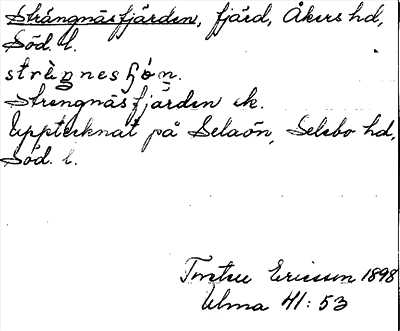 Strängnäsfjärden, fjärd, Åkers hd,
Söd. l.
strèŋnesfjón.
Strengnäsfjärden ek.
Upptecknat på Selaön, Selebo hd,
Söd. l.
Torsten Ericsson 1898
Ulma 41:53